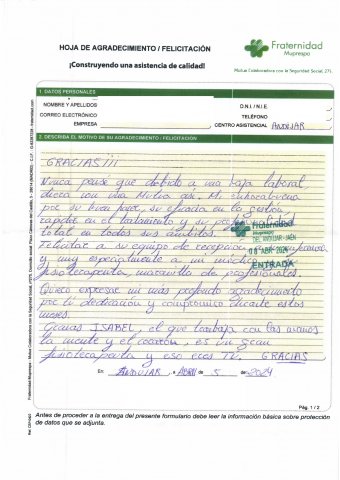 HOJA DE AGRADECIMIENTO / FELICITACIÓN
¡Construyendo una asistencia de calidad!
Fraternidad
Muprespa
Mutua Colaboradora con la Seguridad Social, 275
1 DATOS PERSONALES
NOMBRE Y APELLIDOS
D.N.I./ N.I.E.
CORREO ELECTRÓNICO
TELÉFONO
EMPRESA
CENTRO ASISTENCIAL ANDUJAR
2. DESCRIBA EL MOTIVO DE SU AGRADECIMIENTO / FELICITACIÓN
GRACIAS!!!
Nunca pensé que debido a una baja laboral,
diera con una Mutua así. Mi enhorabuena
por su buen hacer, su eficacia en la gestión,
rapidez en el tratamiento y su profesionalidad
total en todos sus ámbitos.
Felicitar a su equipo de recepción
y muy especialmente a mi médico
fisioterapeuta, maravilla de profesionales.
Quiero expresar mi más profundo agradecimiento
por tu dedicación y compromiso durante estos
meses.
Gracias ISABEL, el que trabaja con las manos
la mente y el corazón, es un gran
fisioterapeuta y eso eres TÚ. GRACIAS
Fraternidad
Muprespa
DEL ANDUJAR - JAÉN
08 ABR 2024
ENTRADA
En ANDUJAR, a ABRIL de 5 de 2024
Pág. 1 / 2
Antes de proceder a la entrega del presente formulario debe leer la información básica sobre protección
de datos que se adjunta.